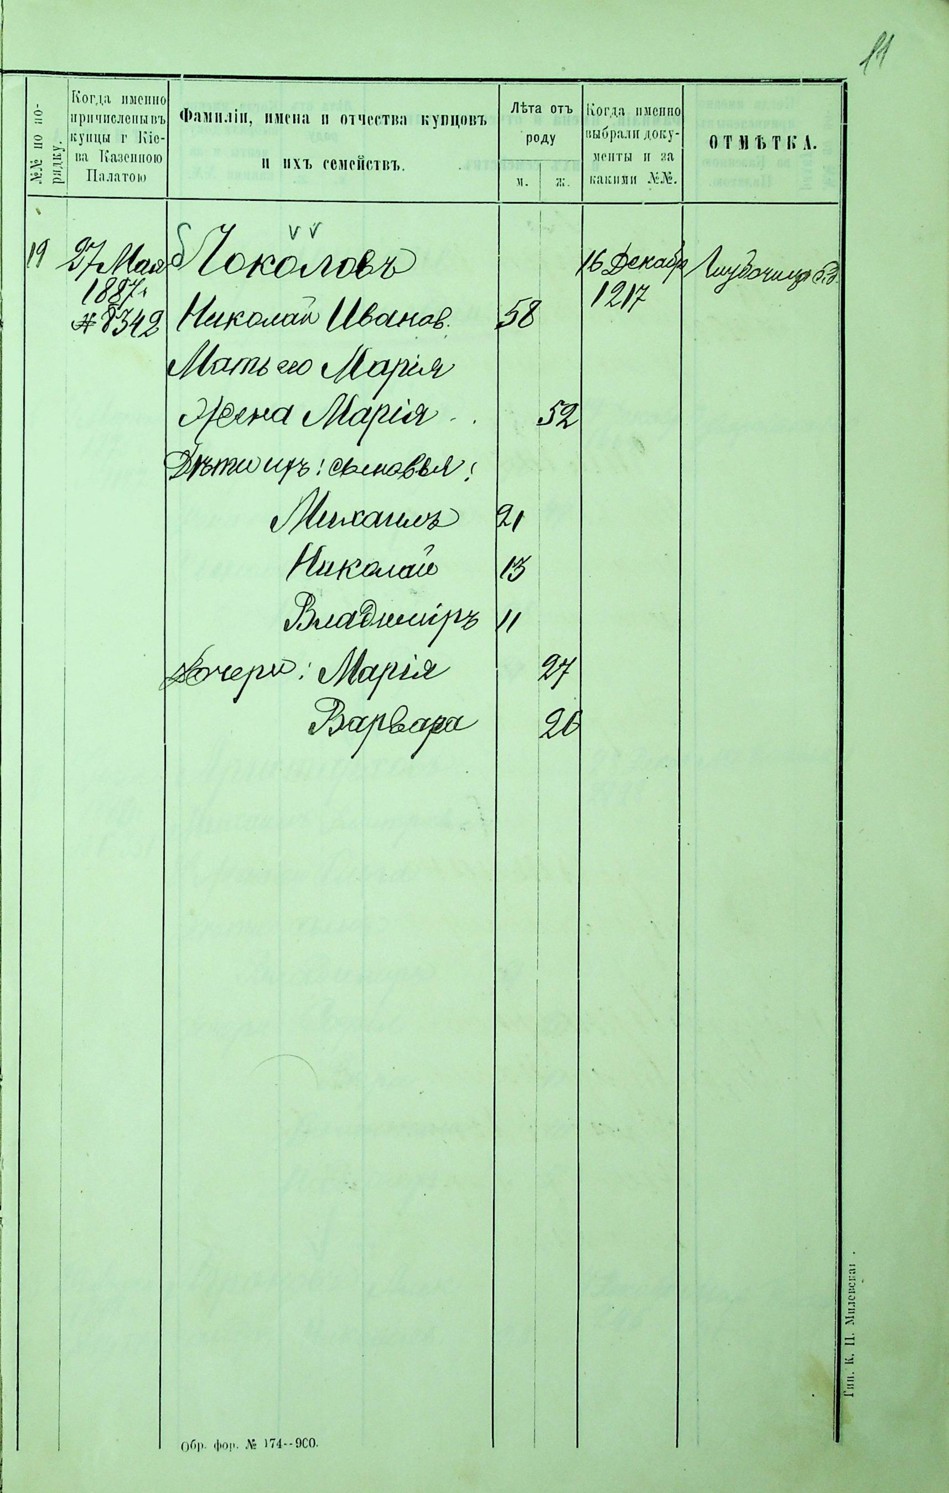 11
№№ по порядку.
Когда именно
причислены въ
купцы г Кіе-
ва Казенною
Палатою
Фамиліи, имена и отчества купцовъ
и ихъ семействъ.
Лѣта отъ
роду
м. ж.
Когда именно
выбрали доку-
менты и за
какими №№.
ОТМѢТКА.
19 27 Мая Чоколовъ 16 Декабр
1887 1217
# 8342 Николай Иванов. 58
Мать его Марія
Жена Марія 52
Дѣти ихъ: сыновья:
Михаилъ 21
Николай 13
Владиміръ 11
Дочери: Марія 27
Варвара 26
Обр. фор. № 174--900.
Тип. К. П. Милевскаг